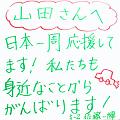 山田さんへ
日本一周応援して
ます！私たちも
身近なことから
がんばります！